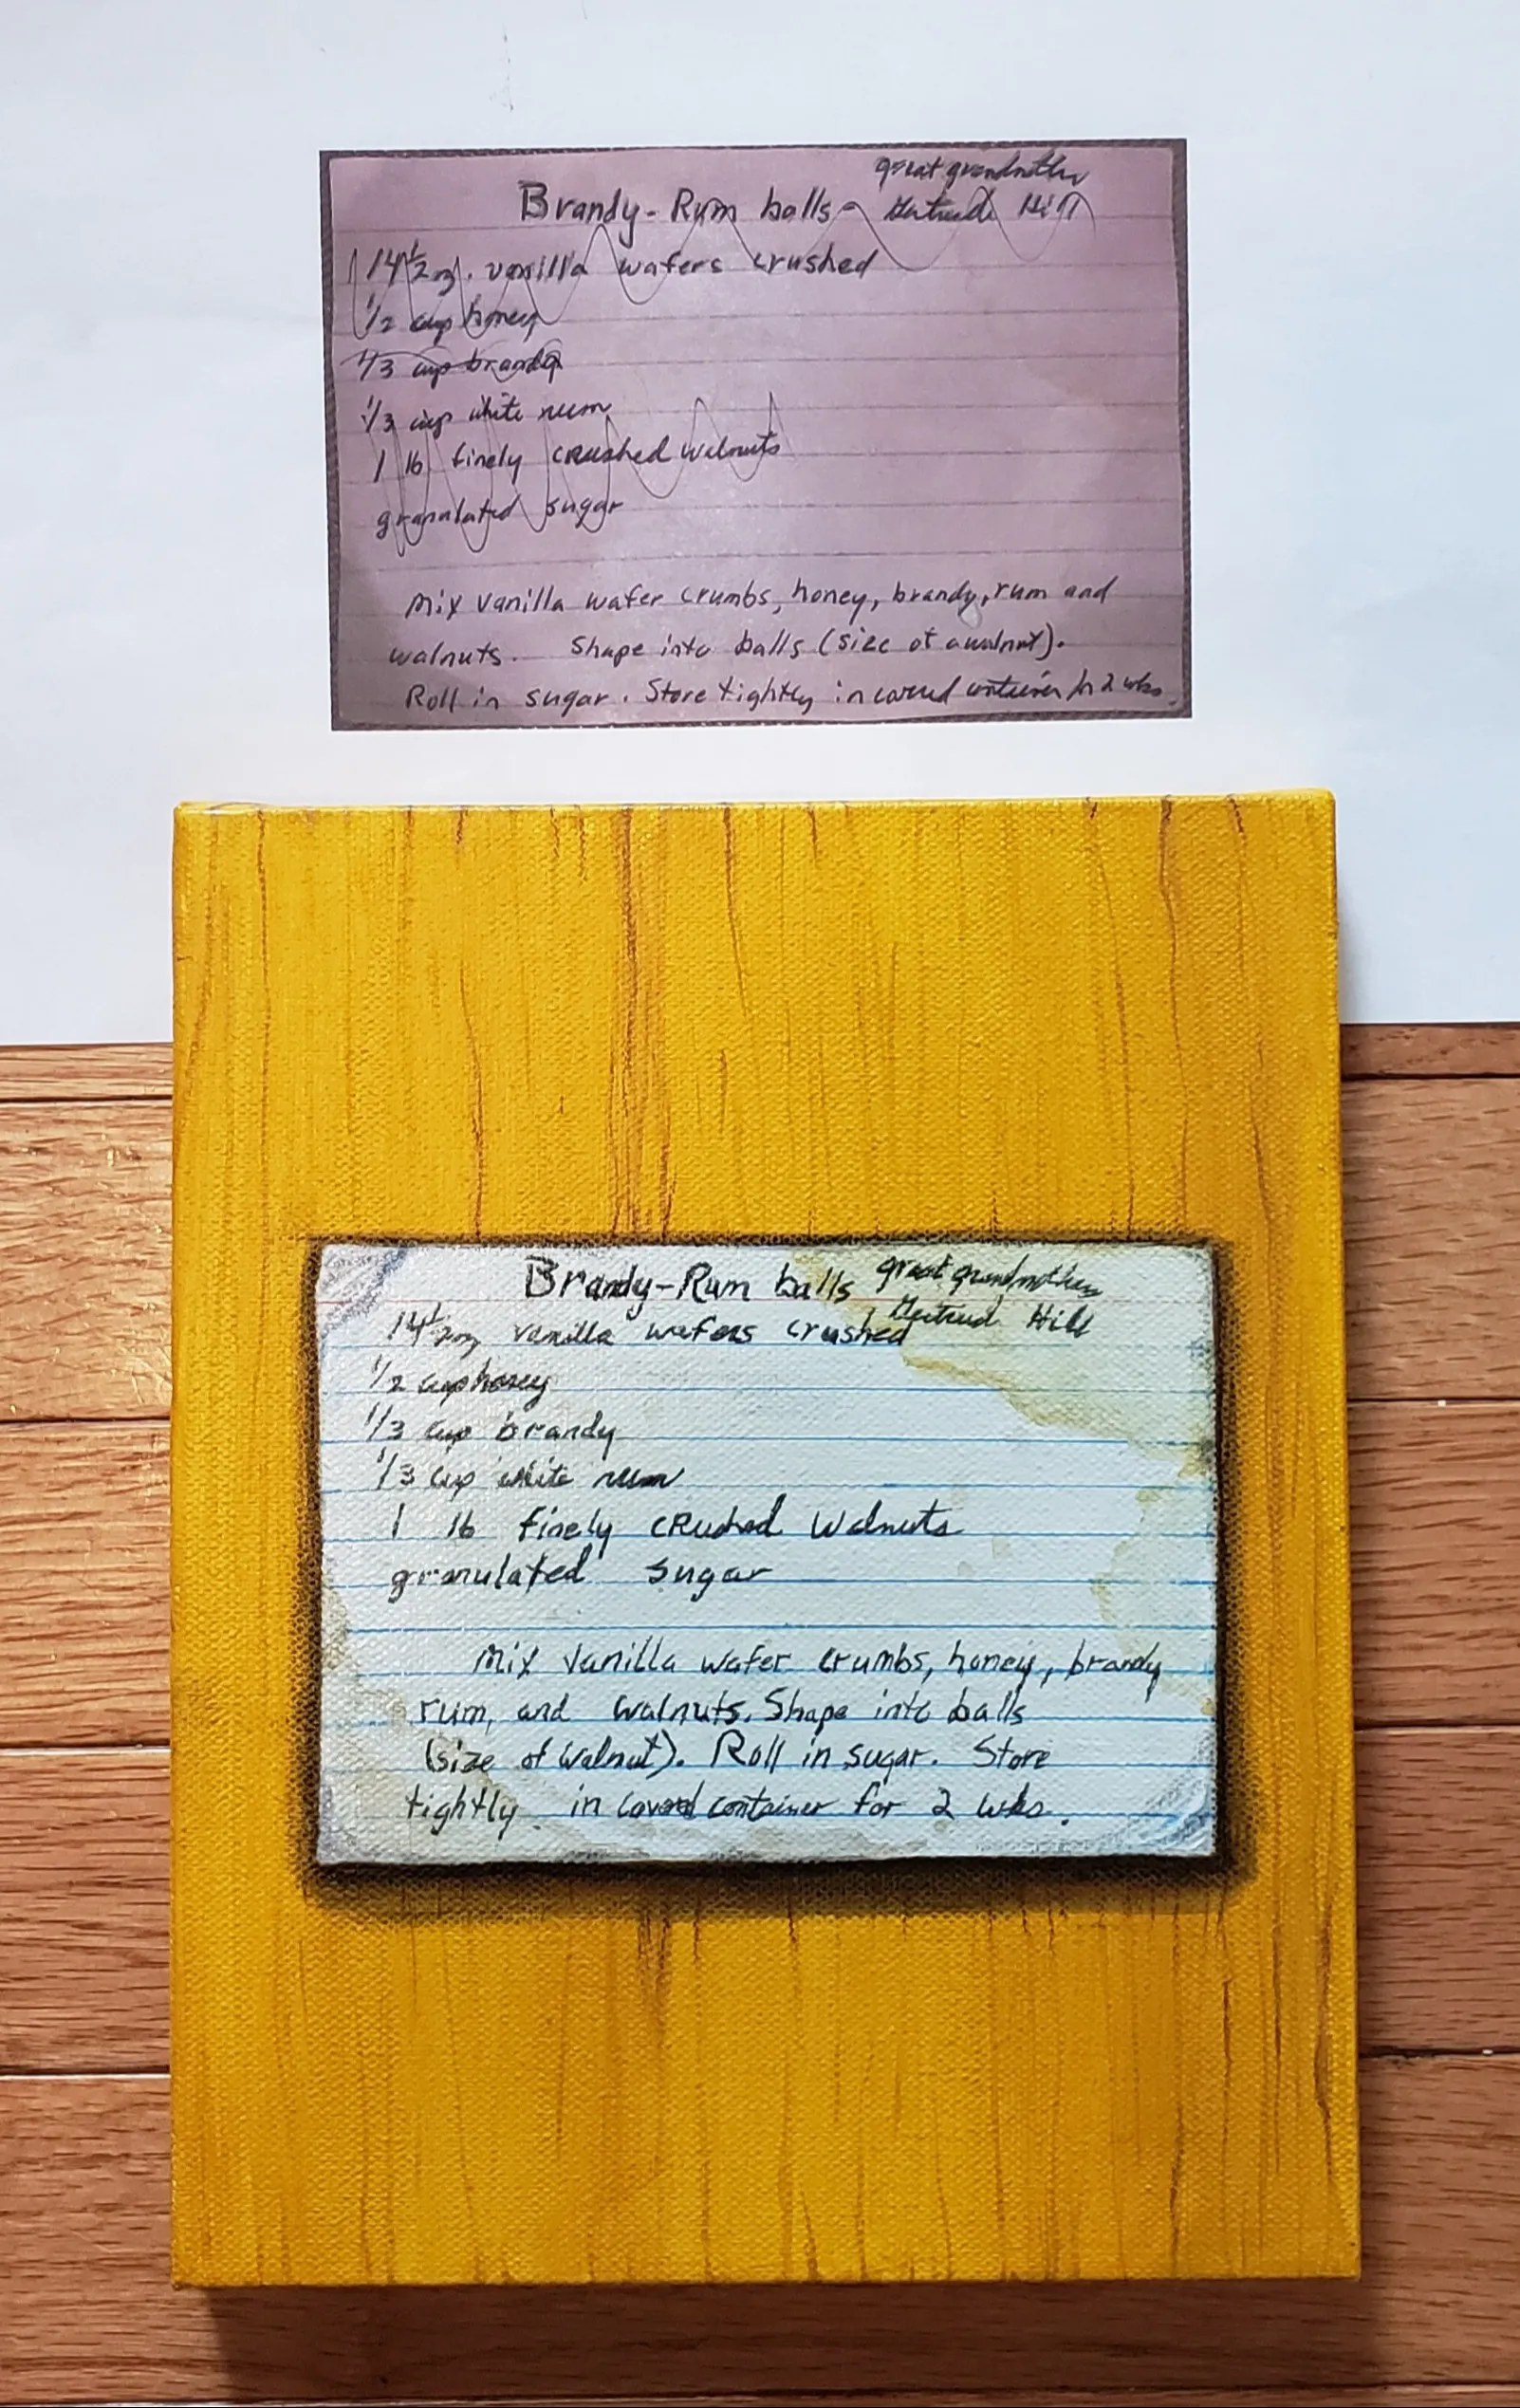 great grandmother
Brandy-Rum balls - Gertrude Hill
14 1/2 oz. vanilla wafers crushed
1/2 cup honey
1/3 cup brandy
1/3 cup white rum
1 lb finely crushed walnuts
granulated sugar
Mix vanilla wafer crumbs, honey, brandy, rum and
walnuts. Shape into balls (size of a walnut).
Roll in sugar. Store tightly in covered container for 2 wks.
Brandy-Rum balls great grandmother
Gertrud Hill
14 1/2 oz vanilla wafers crushed
1/2 cup honey
1/3 cup brandy
1/3 cup white rum
1 lb finely crushed walnuts
granulated sugar
Mix vanilla wafer crumbs, honey, brandy
rum, and walnuts. Shape into balls
(size of walnut). Roll in sugar. Store
tightly in covered container for 2 wks.